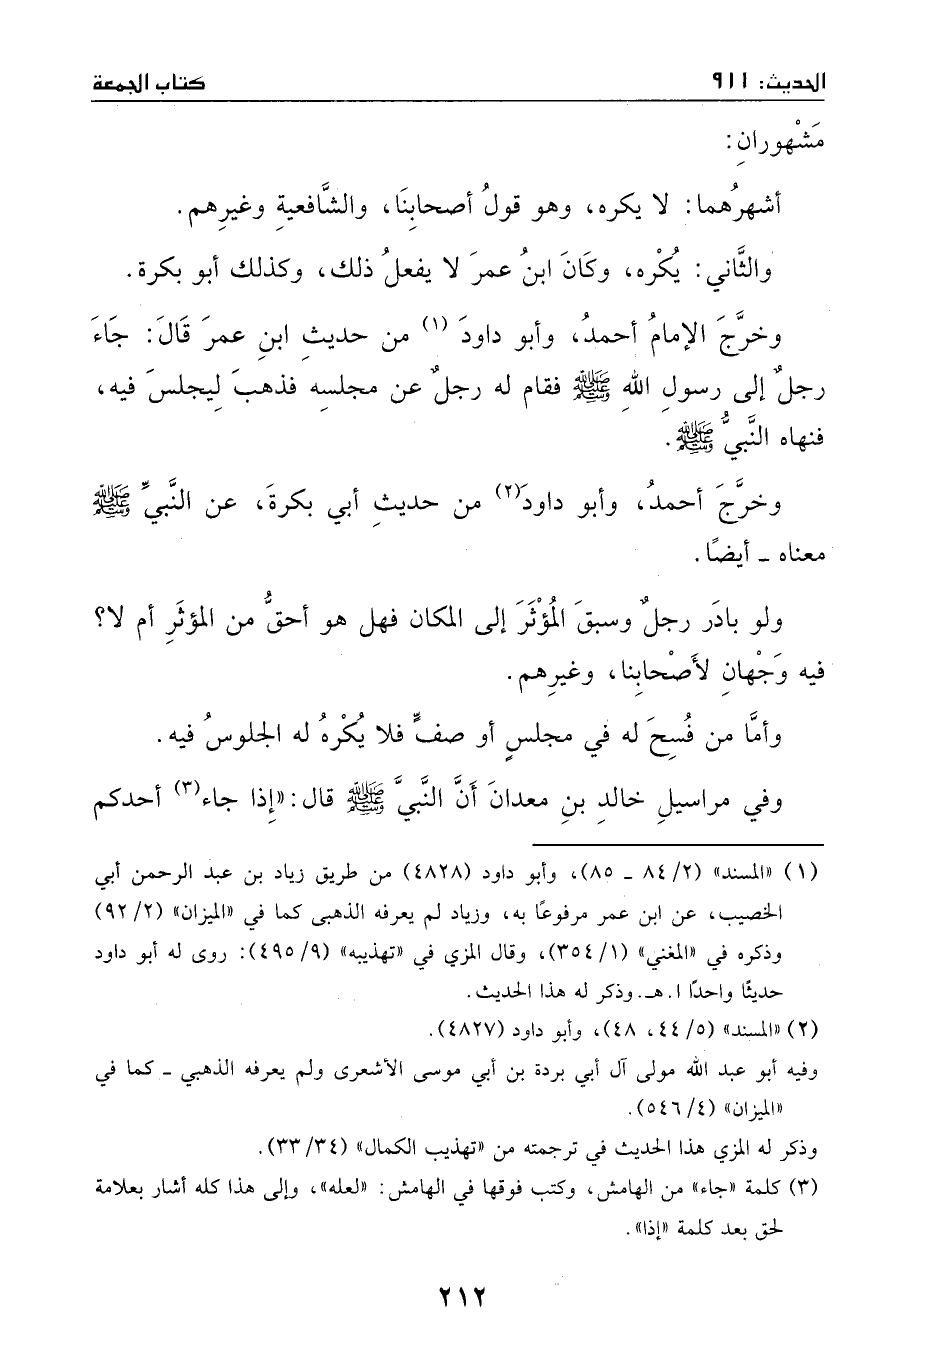 الحديث: ٩١١
كتاب الجمعة
مَشْهورانِ:
أشهرُهما: لا يكره، وهو قولُ أصحابِنَا، والشَّافعيةِ وغيرِهم.
والثَّاني: يُكْره، وكَانَ ابنُ عمرَ لا يفعلُ ذلك، وكذلك أبو بكرة.
وخرَّجَ الإمامُ أحمدُ، وأبو داودَ (١) من حديثِ ابنِ عمرَ قَالَ: جَاءَ
رجلٌ إلى رسولِ اللهِ ﷺ فقام له رجلٌ عن مجلسِه فذهبَ لِيجلسَ فيه،
فنهاه النَّبيُّ ﷺ.
وخرَّجَ أحمدُ، وأبو داودَ(٢) من حديثِ أبي بكرةَ، عن النَّبيِّ ﷺ
معناه ـ أيضًا.
ولو بادَر رجلٌ وسبقَ المُؤْثَرَ إلى المكان فهل هو أحقُّ من المؤثَرِ أم لا؟
فيه وَجْهانِ لأَصْحابِنا، وغيرِهم.
وأمَّا من فُسِحَ له في مجلسٍ أو صفٍّ فلا يُكْرهُ له الجلوسُ فيه.
وفي مراسيلِ خالدِ بنِ معدانَ أَنَّ النَّبيَّ ﷺ قال: «إِذا جاء(٣) أحدكم
(١) «المسند» (٢/ ٨٤ ـ ٨٥)، وأبو داود (٤٨٢٨) من طريق زياد بن عبد الرحمن أبي
الخصيب، عن ابن عمر مرفوعًا به، وزياد لم يعرفه الذهبى كما في «الميزان» (٢/ ٩٢)
وذكره في «المغني» (١/ ٣٥٤)، وقال المزي في «تهذيبه» (٩/ ٤٩٥): روى له أبو داود
حديثًا واحدًا ا.هـ.وذكر له هذا الحديث.
(٢) «المسند» (٥/ ٤٤، ٤٨)، وأبو داود (٤٨٢٧).
وفيه أبو عبد الله مولى آل أبي بردة بن أبي موسى الأشعرى ولم يعرفه الذهبي ـ كما في
«الميزان» (٤/ ٥٤٦).
وذكر له المزي هذا الحديث في ترجمته من «تهذيب الكمال» (٣٤/ ٣٣).
(٣) كلمة «جاء» من الهامش، وكتب فوقها في الهامش: «لعله»، وإلى هذا كله أشار بعلامة
لحق بعد كلمة «إذا».
٢١٢